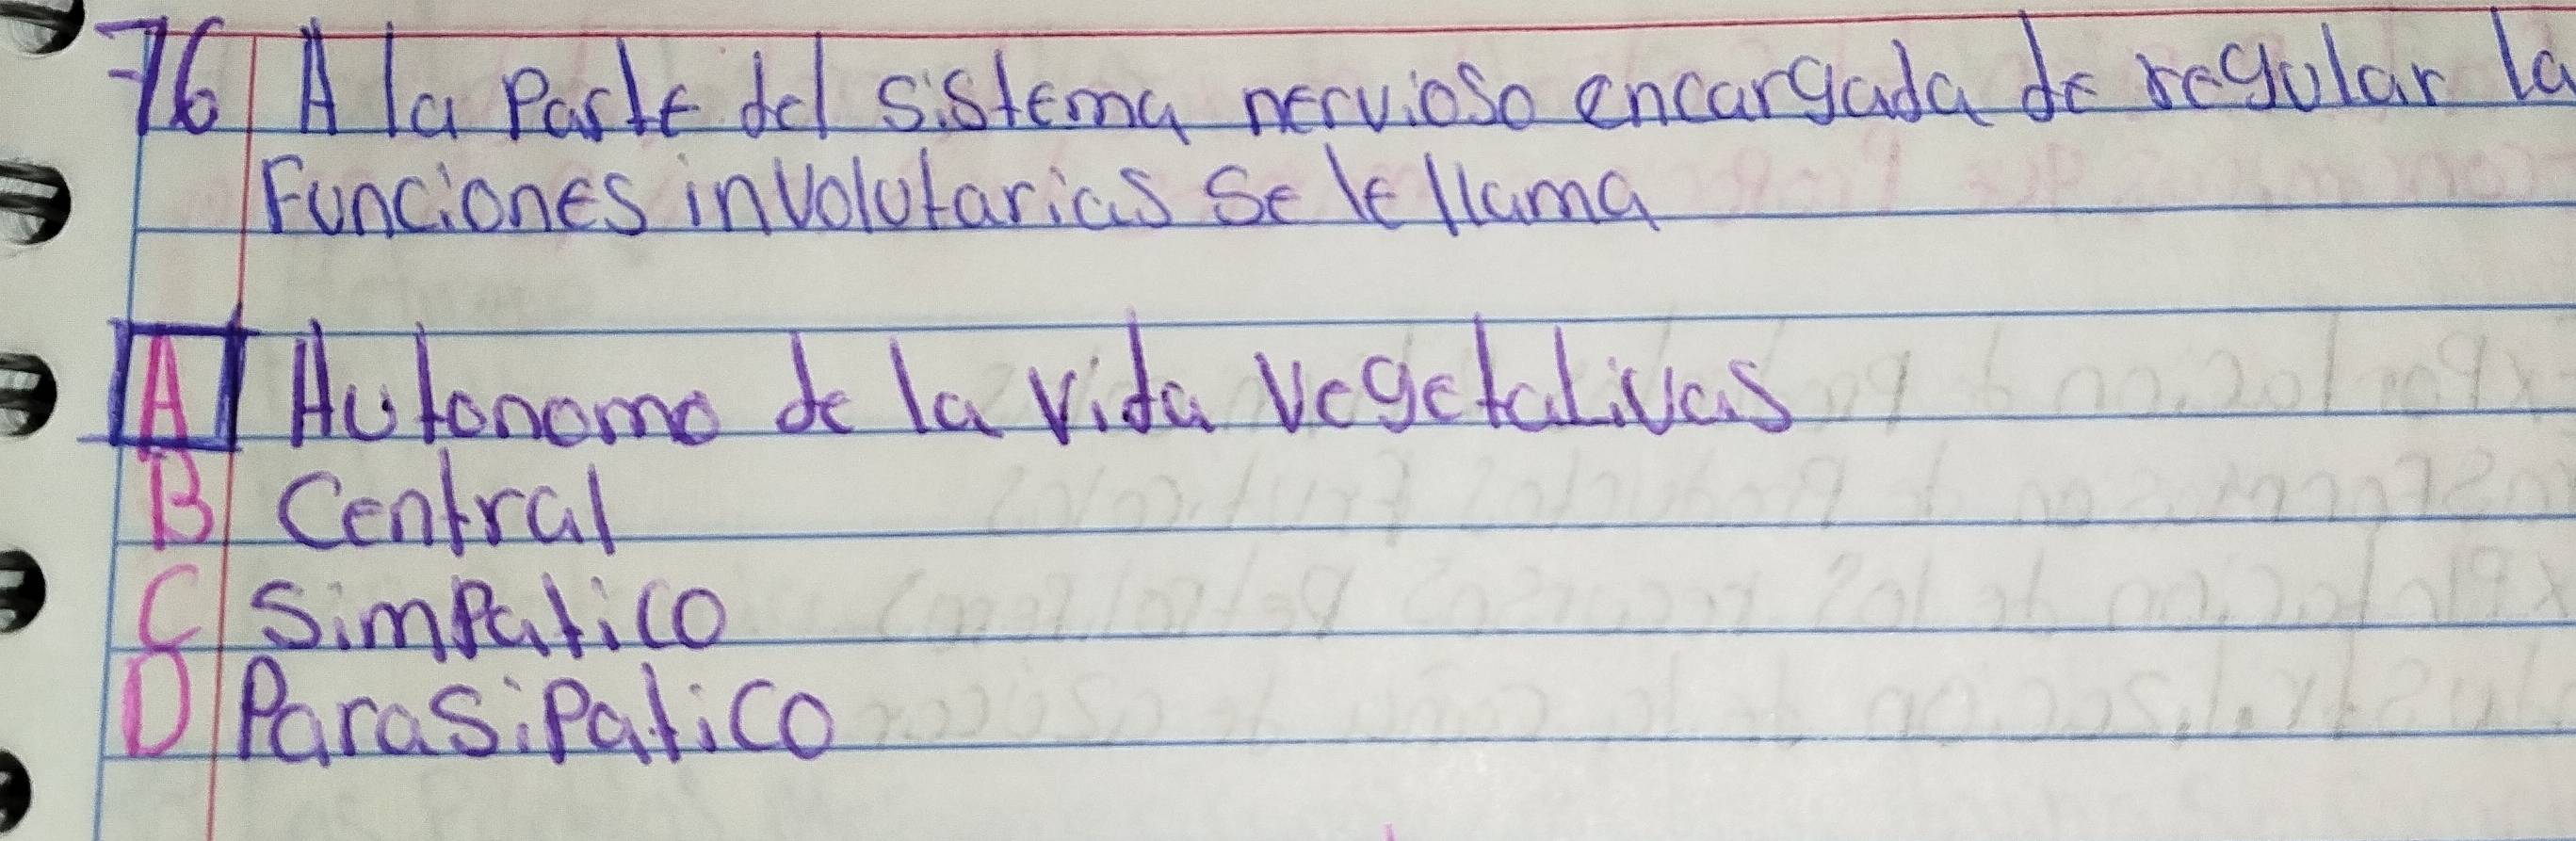 76 A la Parte del sistema nervioso encargada de regular la
Funciones involutarias se le llama
A Autonomo de la vida vegetativas
B Central
C Simpatico
D Parasipatico